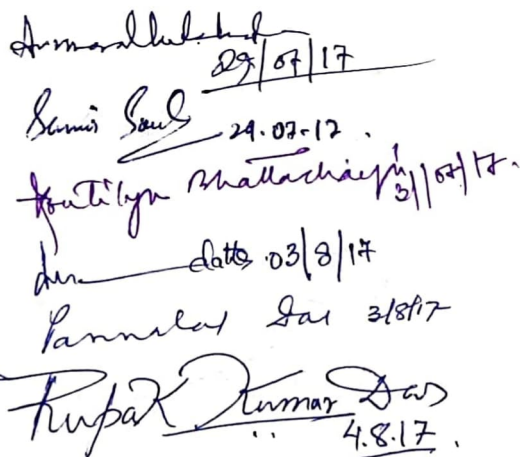 29/07/17
Samir
29.07.17.
Koutilya Bhattacharya
31/07/17.
datta 03/8/17
Pannalal Das 3/8/17
Rupak Kumar Das
4.8.17.